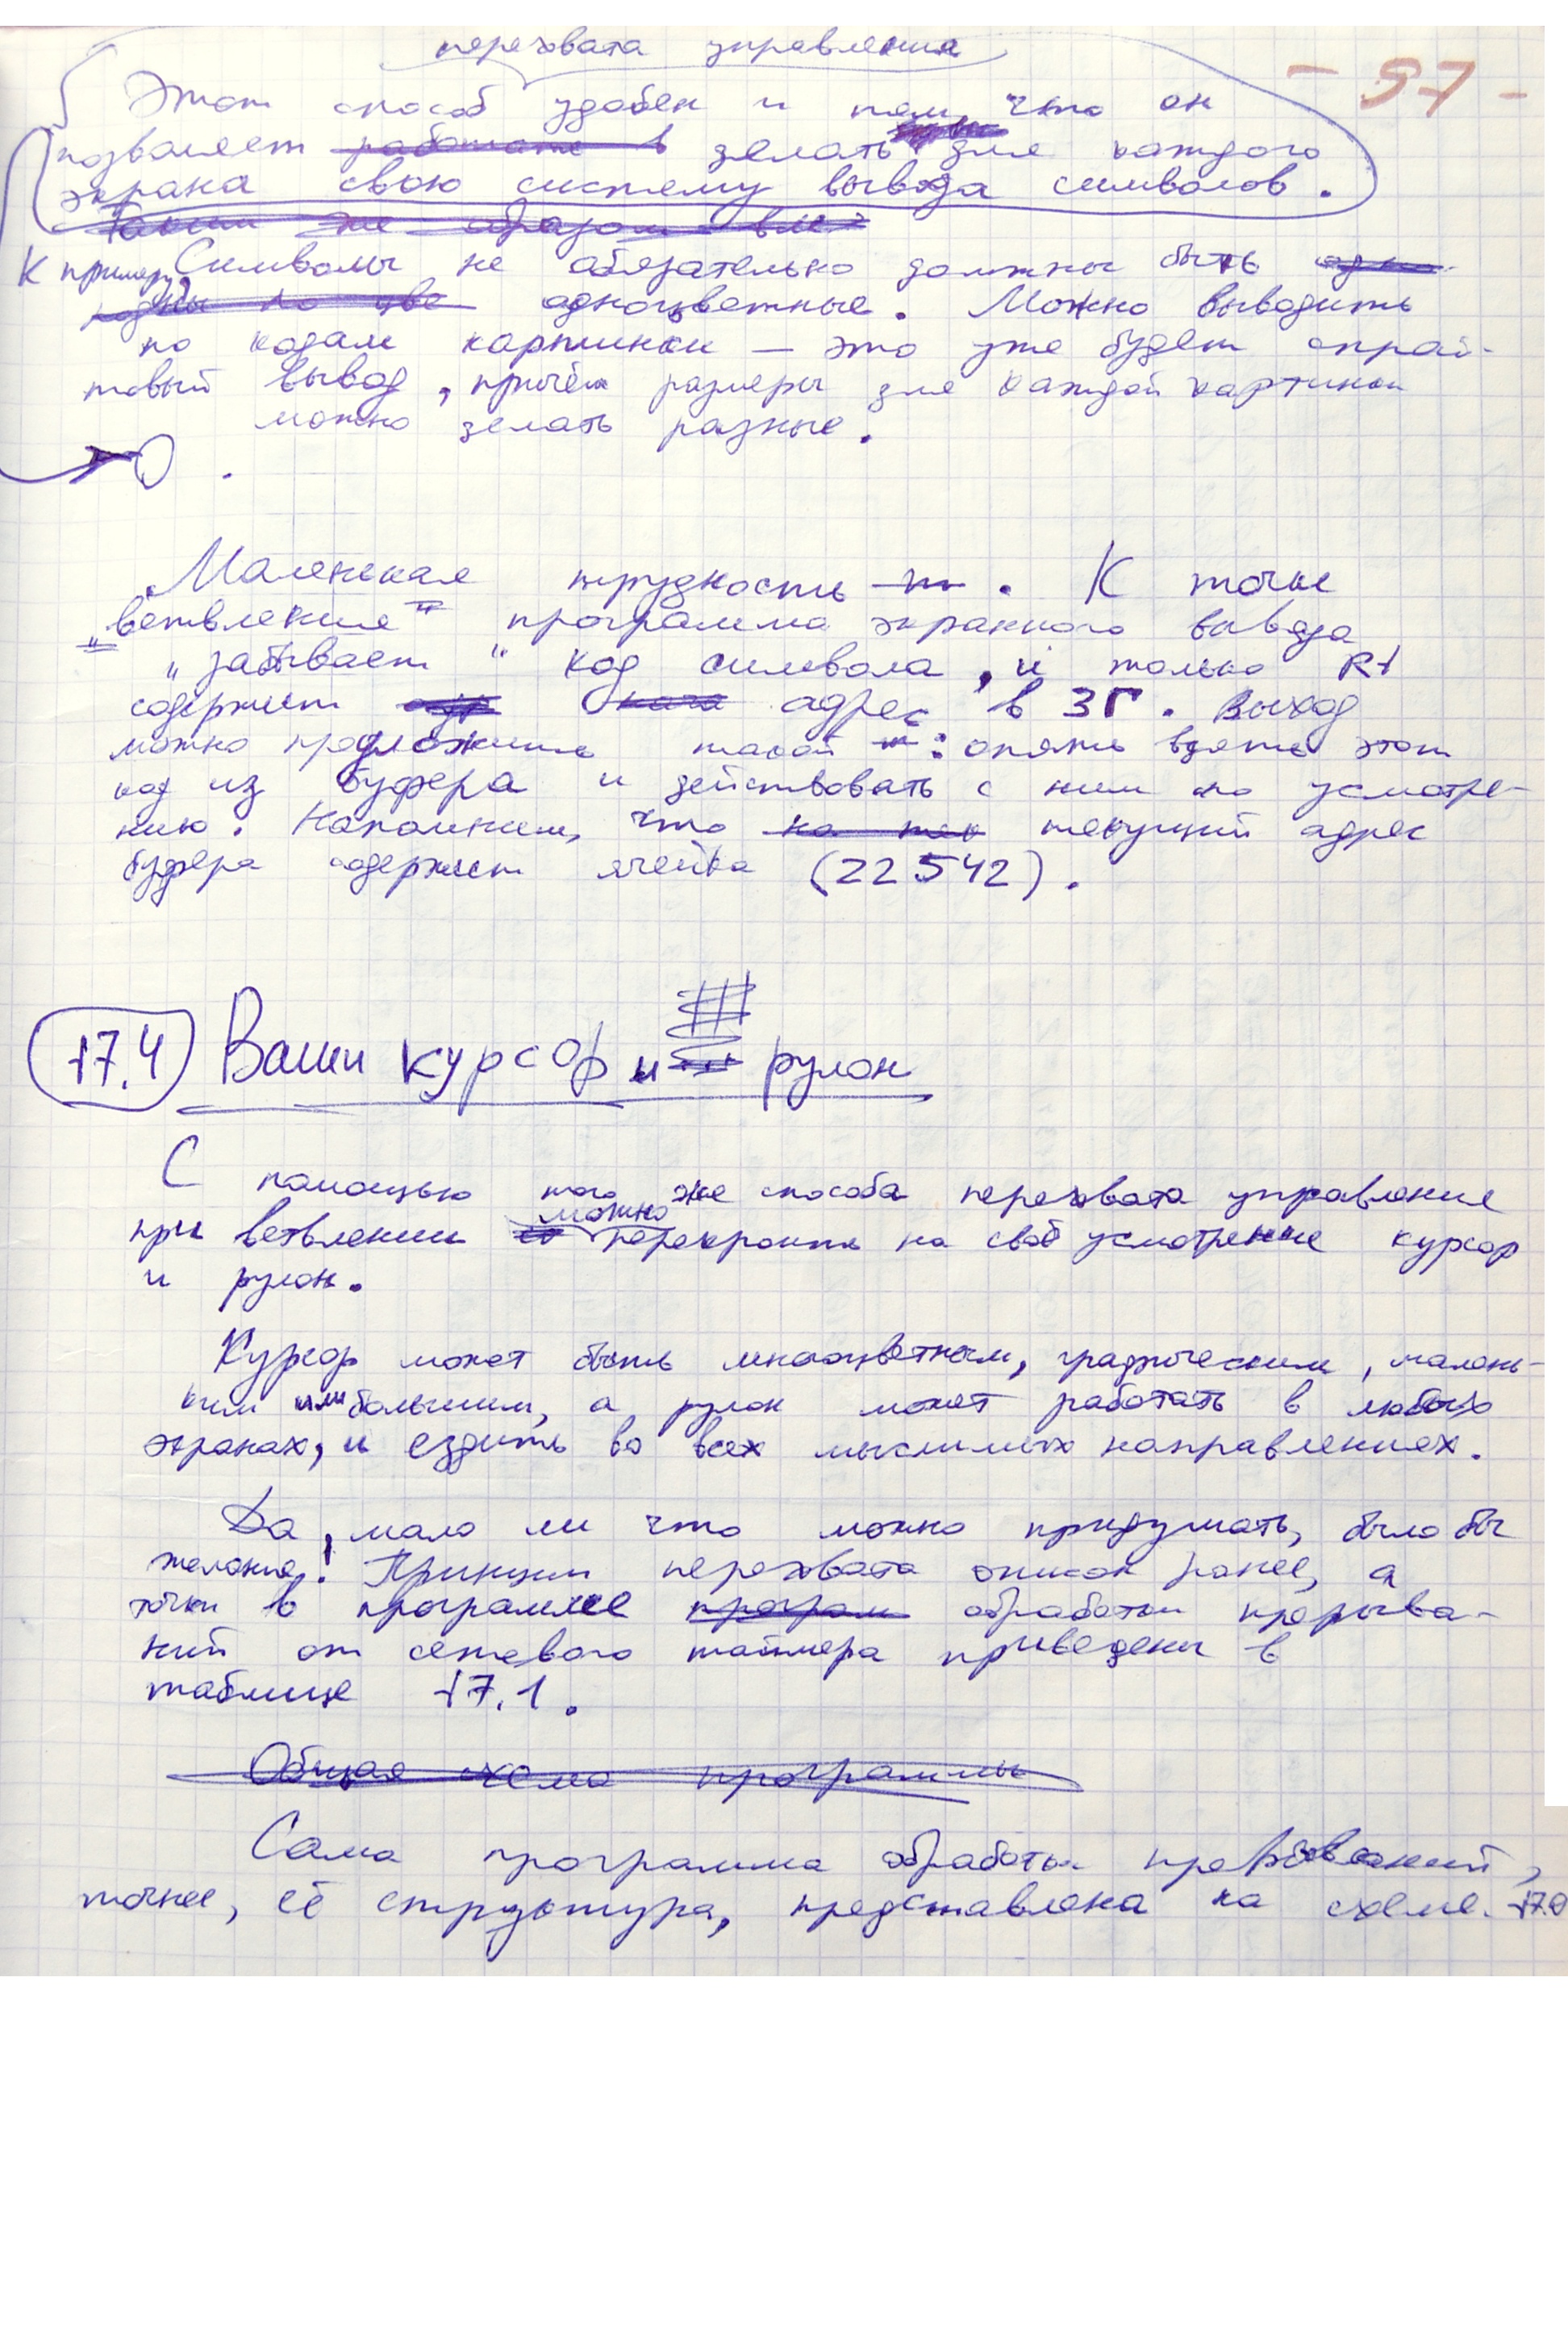 перехвата управления
- 97 -
Этот способ удобен и тем, что он
позволяет работать в делать для каждого
экрана свою систему вывода символов.
Таким же образом
К примеру, Символы не обязательно должны быть одно-
одноцветные. Можно выводить
по кодам картинки — это уже будет спрай-
товый вывод, причём размеры для каждой картинки
можно делать разные.
Маленькая трудность. К точке
„ветвления" программа экранного вывода
„забывает" код символа, и только R1
содержит адрес в ЗГ. Выход
можно предложить такой: опять взять этот
код из буфера и действовать с ним по усмотре-
нию. Напомним, что текущий адрес
буфера содержит ячейка (22542).
17.4 Ваши курсор и рулон
С помощью того же способа перехвата управления
при ветвлении можно перекроить на своё усмотрение курсор
и рулон.
Курсор может быть многоцветным, графическим, малень-
ким или большим, а рулон может работать в любых
экранах, и ездить во всех мыслимых направлениях.
Да, мало ли что можно придумать, было бы
желание! Принцип перехвата описан ранее, а
точки в программе програм обработки прерыва-
ний от сетевого таймера приведены в
таблице 17.1.
Общая схема программы
Сама программа обработки прерываний,
точнее, её структура, представлена на схеме. 17.0